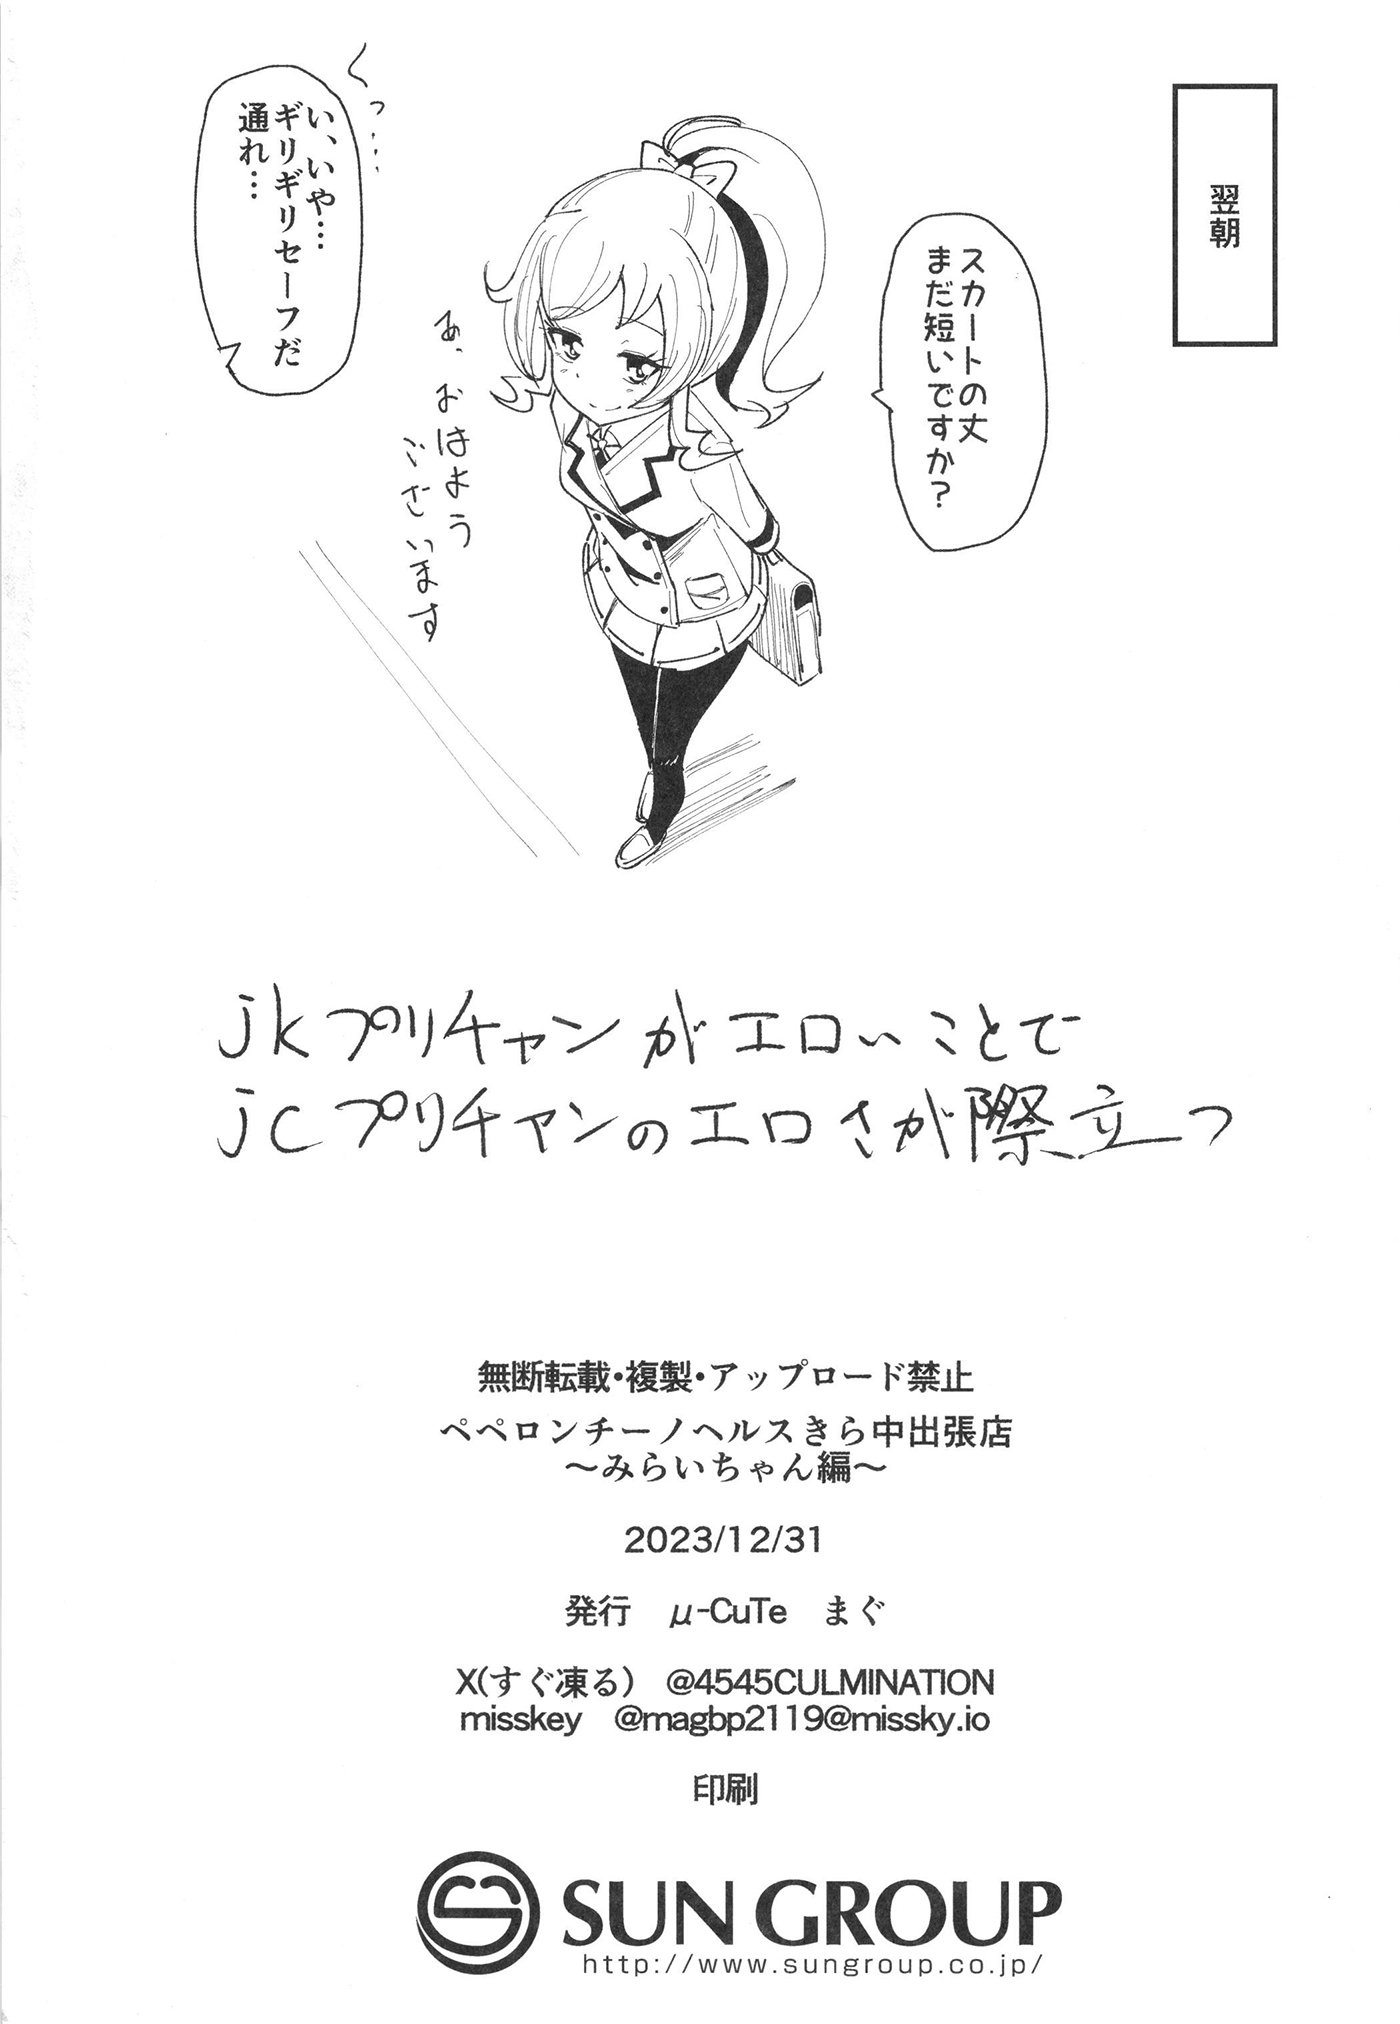 翌朝
スカートの丈
まだ短いですか?
くっ…
い、いや…
ギリギリセーフだ
通れ…
あ、おはよう
ございます
jkプリチャンがエロいことで
jcプリチャンのエロさが際立つ
無断転載・複製・アップロード禁止
ペペロンチーノヘルスきら中出張店
～みらいちゃん編～
2023/12/31
発行　μ-CuTe　まぐ
X(すぐ凍る)　@4545CULMINATION
misskey　@magbp2119@missky.io
印刷
SUN GROUP
http://www.sungroup.co.jp/